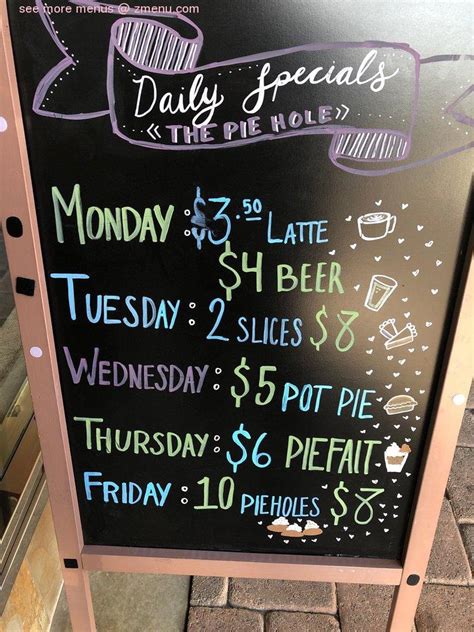 see more menus @ zmenu.com
Daily Specials
«THE PIE HOLE»
MONDAY: $3.50 LATTE
$4 BEER
TUESDAY: 2 SLICES $8
WEDNESDAY: $5 POT PIE
THURSDAY: $6 PIEFAIT
FRIDAY: 10 PIEHOLES $8